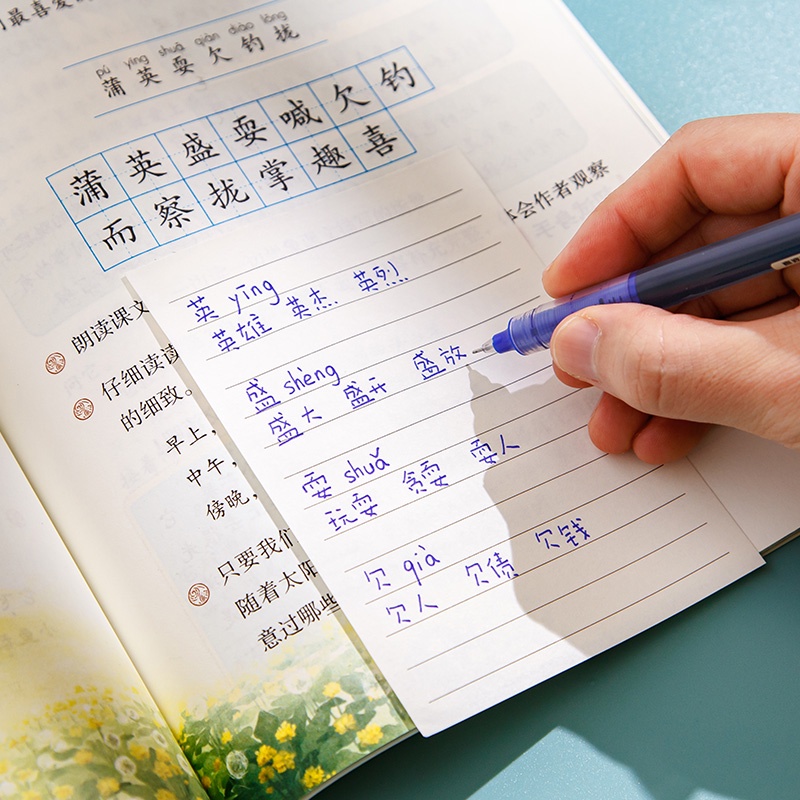 最喜爱
pú yīng shuǎ qiàn diào lǒng
蒲 英 耍 欠 钓 拢
蒲 英 盛 耍 喊 欠 钓
而 察 拢 掌 趣 喜
会作者观察
朗读课文
仔细读读
的细致。
早上，
中午，
傍晚，
只要我们
随着太阳
意过哪些
英 yīng
英雄 英杰 英烈
盛 shèng
盛大 盛开 盛放
耍 shuǎ
玩耍 贪耍 耍人
欠 qià
欠人 欠债 欠钱